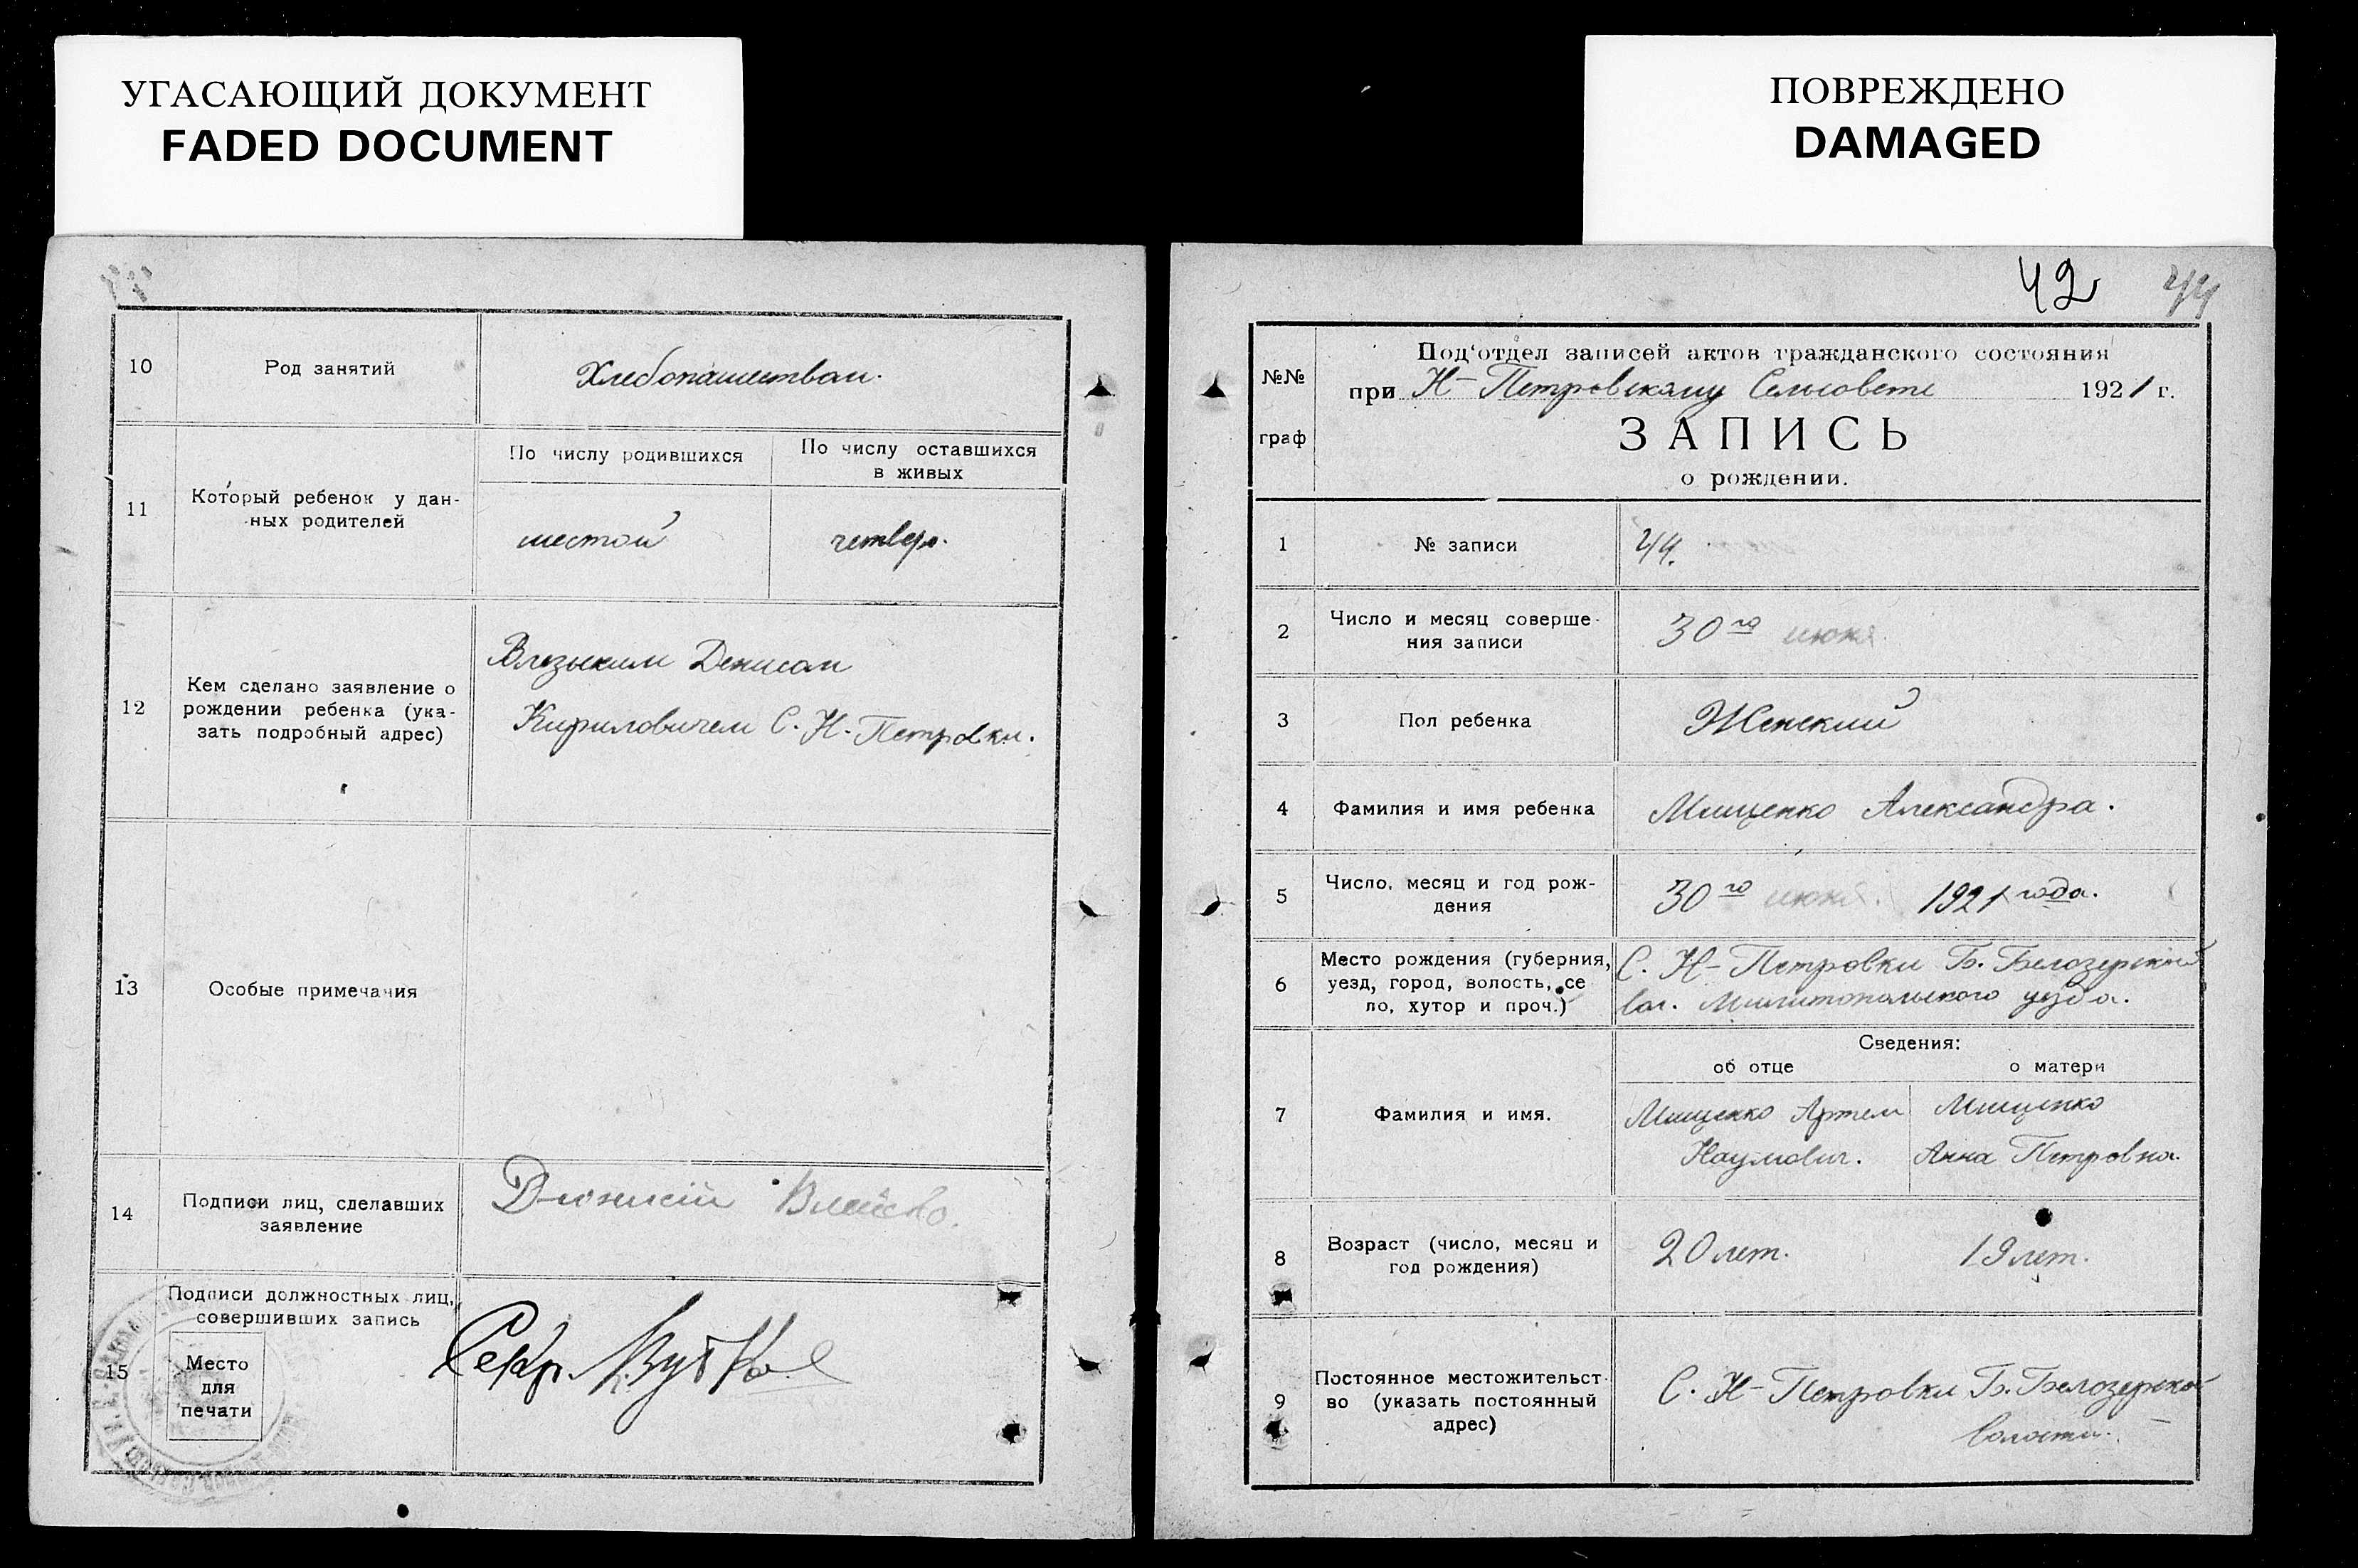 УГАСАЮЩИЙ ДОКУМЕНТ
FADED DOCUMENT
ПОВРЕЖДЕНО
DAMAGED
10
Род занятий
Хлебопашеством.
11
Который ребенок у дан-
ных родителей
По числу родившихся
По числу оставшихся
в живых
шестой
четвер.
12
Кем сделано заявление о
рождении ребенка (ука-
зать подробный адрес)
Денисом
Кириловичем С. Н-Петровки.
13
Особые примечания
14
Подписи лиц, сделавших
заявление
15
Подписи должностных лиц,
совершивших запись
Место
для
печати
Секр.
42
44
№№
граф
Под'отдел записей актов гражданского состояния
при Н-Петровскому Сельсовете 1921 г.
ЗАПИСЬ
о рождении.
1
№ записи
44.
2
Число и месяц соверше-
ния записи
30го июня
3
Пол ребенка
Женский
4
Фамилия и имя ребенка
Мищенко Александра.
5
Число, месяц и год рож-
дения
30го июня. 1921 года.
6
Место рождения (губерния,
уезд, город, волость, се
ло, хутор и проч.)
С. Н-Петровки Б. Белозерской
вол. Милитопольского уезда.
Сведения:
об отце
о матери
7
Фамилия и имя.
Мищенко Артем
Наумович.
Мищенко
Анна Петровна.
8
Возраст (число, месяц и
год рождения)
20 лет.
19 лет.
9
Постоянное местожительст-
во (указать постоянный
адрес)
С. Н-Петровки Б. Белозерской
волости.